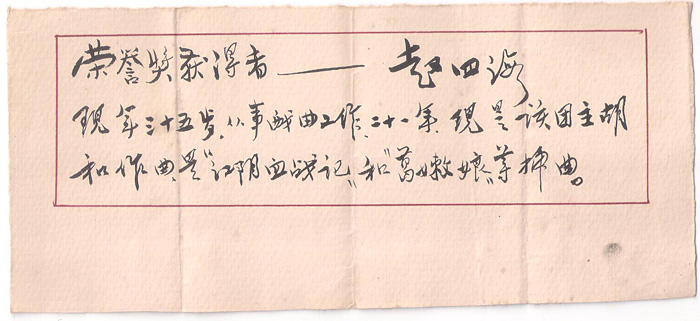 荣誉奖获得者——赵四海
现年三十五岁，从事戏曲工作，二十一年，现是该团主胡
和作曲，是“江阴血战记”和“葛嫩娘”等排曲。